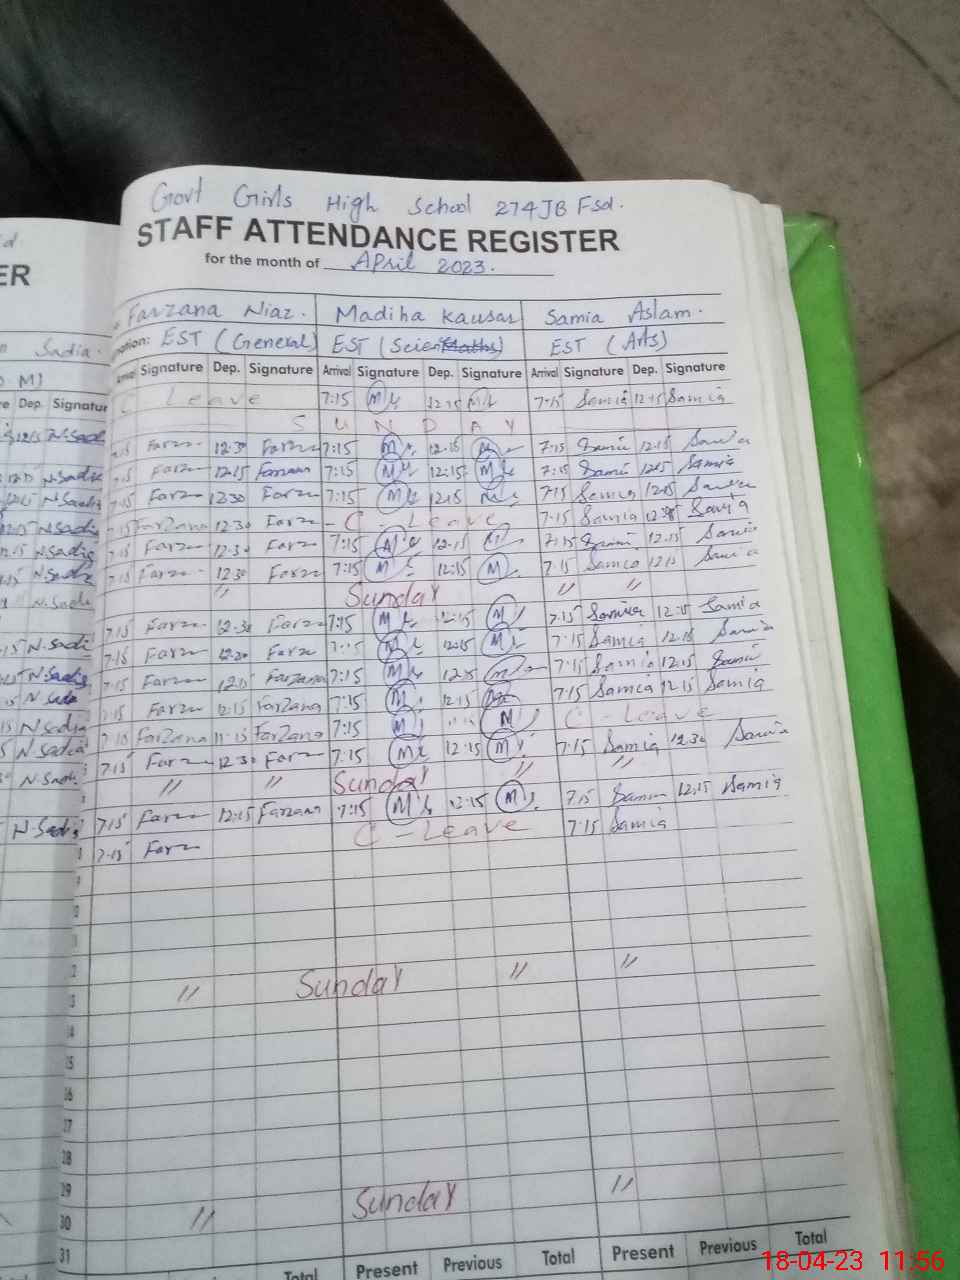 Govt Girls High School 274JB Fsd.
STAFF ATTENDANCE REGISTER
ER
for the month of April 2023.
Farzana Niaz. Madiha Kausar Samia Aslam.
Sadia.
nation: EST (General) EST (Scien Maths) EST (Arts)
Dep. Signatur
Arrival Signature Dep. Signature Arrival Signature Dep. Signature Arrival Signature Dep. Signature
C Leave 7:15 M 12:15 7:15 Samia 12:15 Samia
S U N D A Y
12:15 N.Sadi 7:15 Farz 12:30 Farz 7:15 M 12:15 M 7:15 Samia 12:15 Samia
N.Sadi 7:15 Farz 12:15 Farzana 7:15 M 12:15 M 7:15 Samia 12:15 Samia
12:15 N.Sadia 7:15 Farz 12:30 Farz 7:15 M 12:15 M 7:15 Samia 12:15 Samia
12:15 N.Sadia 7:15 Farzana 12:30 Farz C - Leave 7:15 Samia Samia
12:15 N.Sadia 7:15 Farz 12:30 Farz 7:15 12:15 7:15 Samia 12:15 Samia
N.Sadia 7:15 Farz 12:30 Farz 7:15 M 12:15 M 7:15 Samia 12:15 Samia
N.Sadi " Sunday " "
7:15 Farz 12:30 Farz 7:15 M 12:15 M 7:15 Samia 12:15 Samia
N.Sadi 7:15 Farz 12:30 Farz M 12:15 M 7:15 Samia 12:15 Samia
N.Sadia 7:15 Farz 12:15 Farzana 7:15 M 12:15 7:15 Samia 12:15 Samia
N.Sadi 7:15 Farz 12:15 Farzana 7:15 M 12:15 7:15 Samia 12:15 Samia
N.Sadia Farzana 11:15 Farzana 7:15 M M C - Leave
N.Sadia 7:15 Farz 12:30 Farz 7:15 M 12:15 M 7:15 Samia 12:30 Samia
N.Sadi " " Sunday " "
N.Sadia 7:15 Farz 12:15 Farzana 7:15 M 12:15 M 7:15 Samia 12:15 Samia
8 7:15 Farz C - Leave 7:15 Samia
9
0
1
2
3 " Sunday " "
24
25
26
27
28
29
30 " Sunday "
31
Total Present Previous Total Present Previous Total
18-04-23 11:56